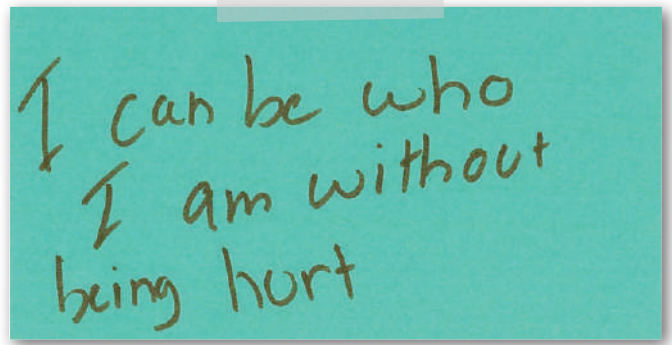 I can be who
I am without
being hurt